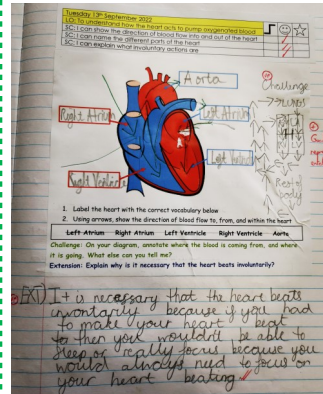 Tuesday 13th September 2022
LO: To understand how the heart acts to pump oxygenated blood
SC: I can show the direction of blood flow into and out of the heart
SC: I can name the different parts of the heart
SC: I can explain what involuntary actions are
Aorta
Challenge
Right Atrium
Left Atrium
Left Ventricle
Right Ventricle
Lungs
Rest of
body
1. Label the heart with the correct vocabulary below
2. Using arrows, show the direction of blood flow to, from, and within the heart
Left Atrium Right Atrium Left Ventricle Right Ventricle Aorta
Challenge: On your diagram, annotate where the blood is coming from, and where
it is going. What else can you tell me?
Extension: Explain why is it necessary that the heart beats involuntarily?
EXT) It is necessary that the heart beats
because if you had
to make your heart beat
then you wouldn't be able to
sleep or really focus because you
would always need to focus on
your heart beating.